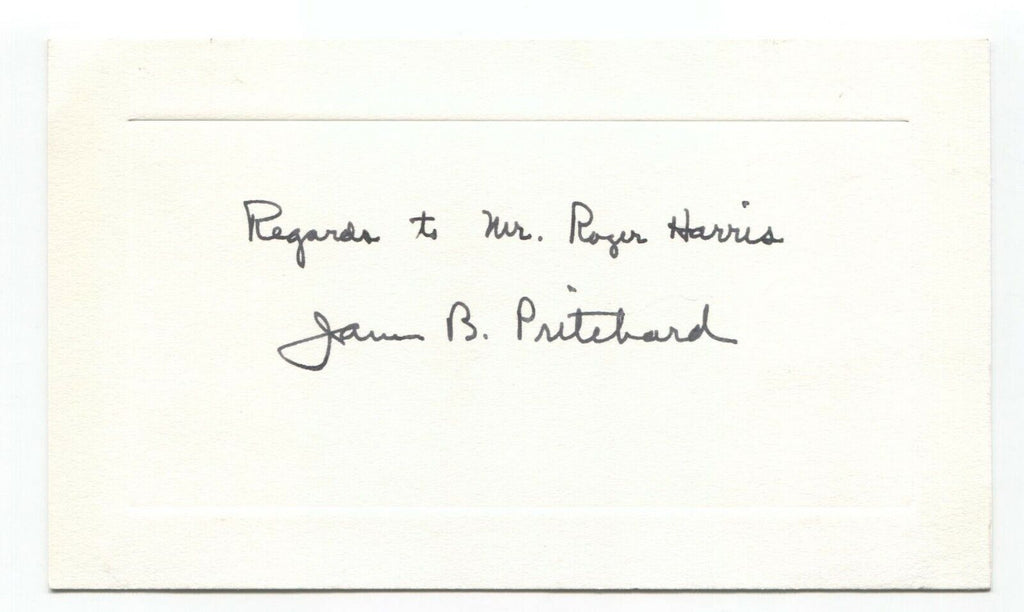 Regards to Mr. Roger Harris
James B. Pritchard